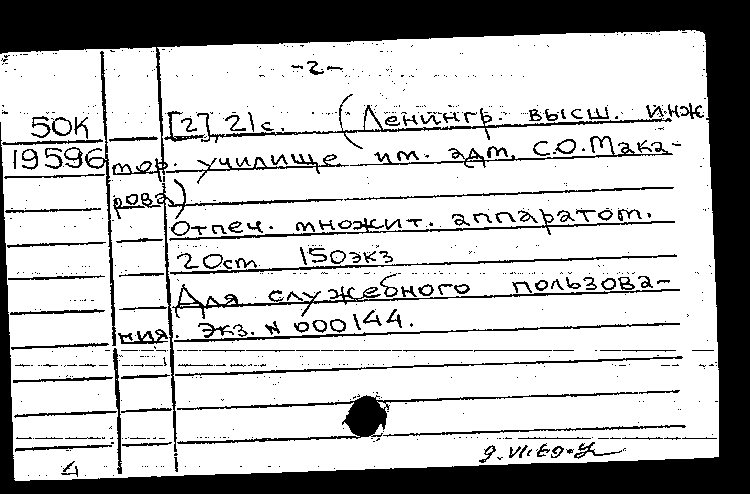 -2-
50К [2], 21с. (Ленингр. высш. инж.
19596 мор. училище им. адм. С.О.Мака-
рова)
Отпеч. множит. аппаратом.
20см 150экз
Для служебного пользова-
ния. Экз. N 000144.
9.VI.69.
4